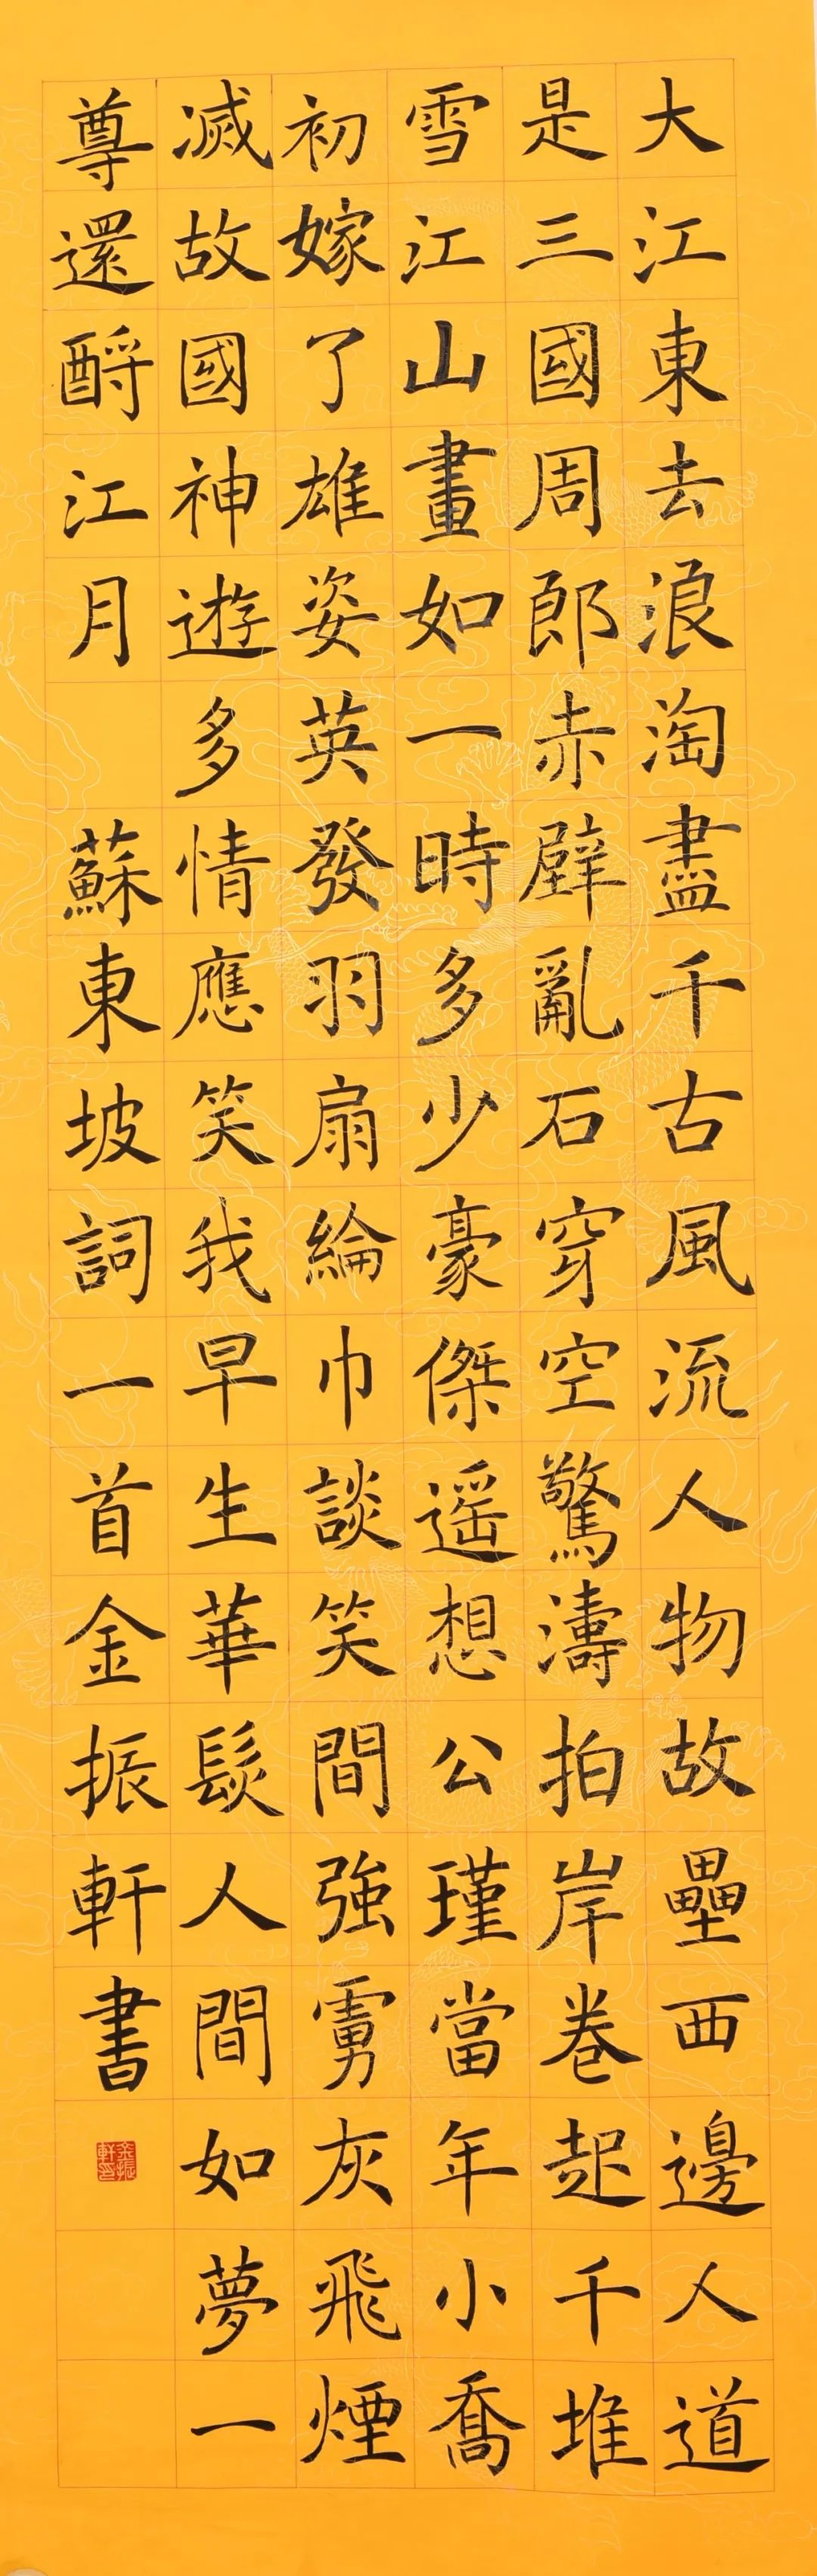 大江東去浪淘盡千古風流人物故壘西邊人道
是三國周郎赤壁亂石穿空驚濤拍岸卷起千堆
雪江山畫如一時多少豪傑遥想公瑾當年小喬
初嫁了雄姿英發羽扇綸巾談笑間強虜灰飛煙
滅故國神遊多情應笑我早生華髮人間如夢一
尊還酹江月 蘇東坡詞一首金振軒書
金振軒印